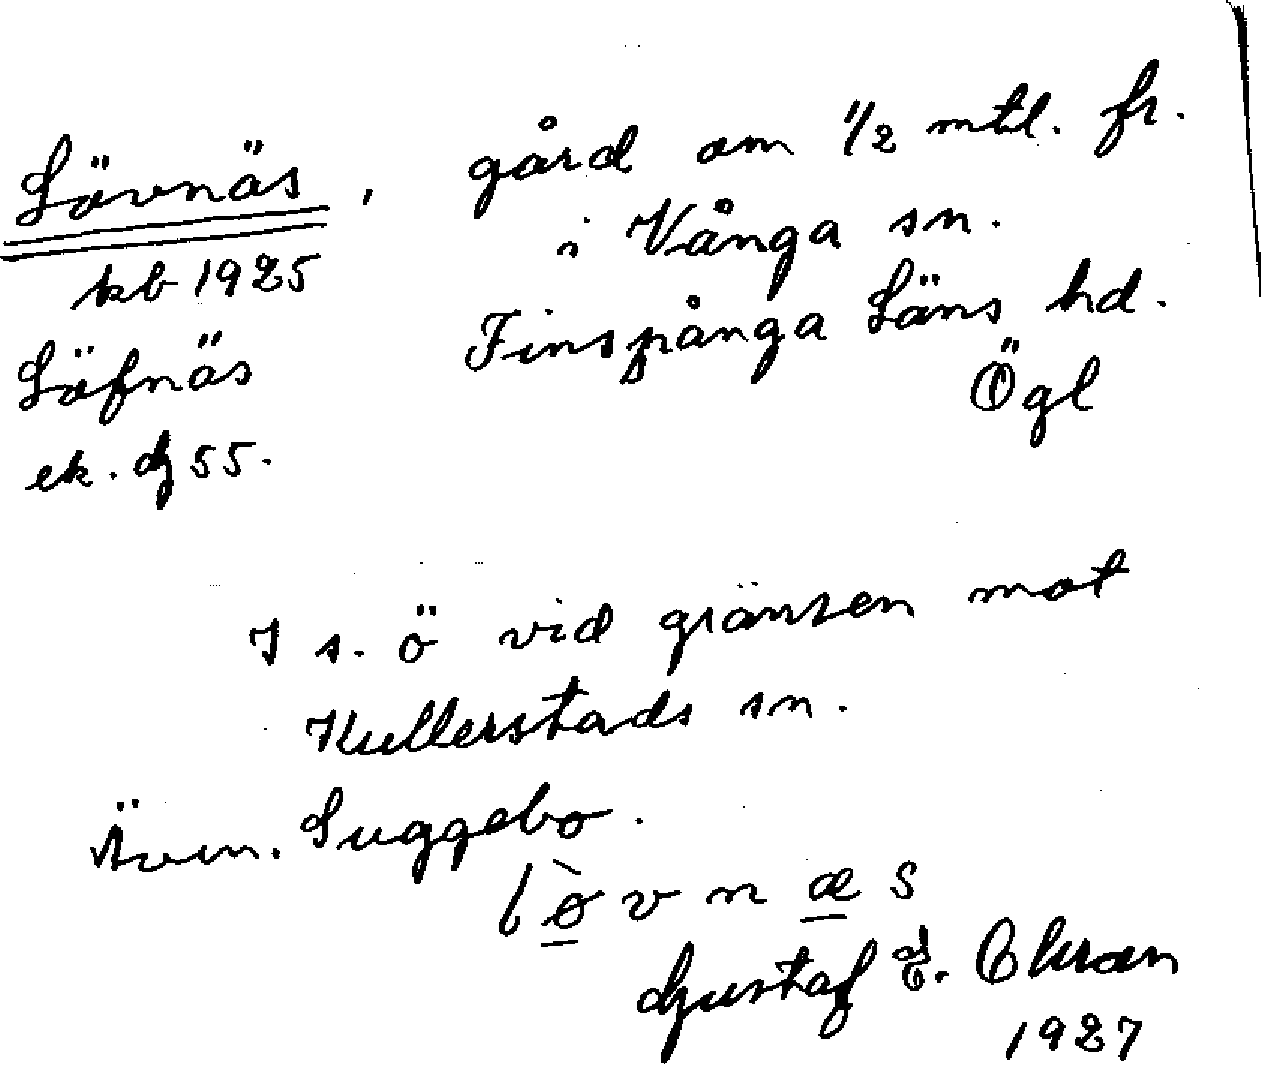 Lövnäs, gård om 1/2 mtl. fr.
i Vånga sn.
kb 1925
Finspånga Läns hd.
Löfnäs
Ögl
ek. dj 55.
I s. ö vid gränsen mot
Kullerstads sn.
Även. Suggebo.
lø̀vnæs
Gustaf E. Ehran
1927